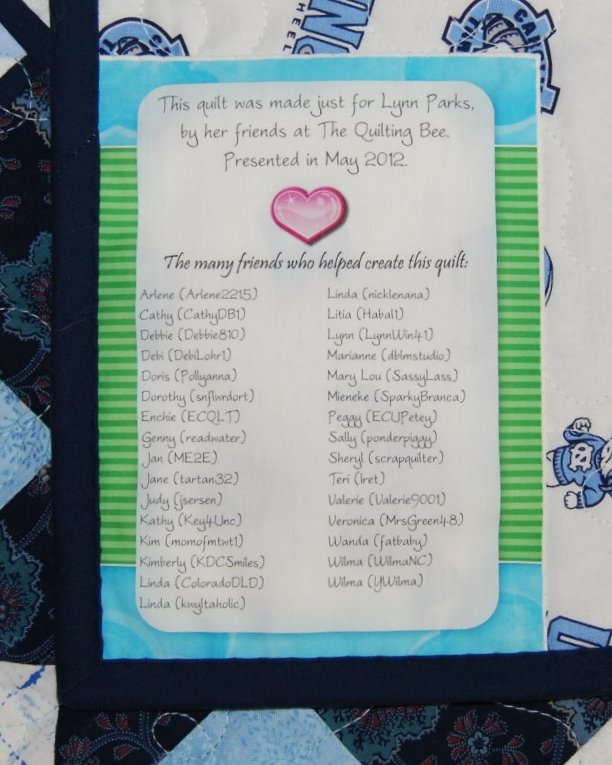 HEEL
This quilt was made just for Lynn Parks,
by her friends at The Quilting Bee.
Presented in May 2012.
The many friends who helped create this quilt:
Arlene (Arlene2215)
Cathy (CathyDB1)
Debbie (Debbie810)
Debi (DebiLohr1)
Doris (Pollyanna)
Dorothy (snflwrdort)
Enchie (ECQLT)
Genny (readwater)
Jan (ME2E)
Jane (tartan32)
Judy (jsersen)
Kathy (Key4Unc)
Kim (momofmtwt1)
Kimberly (KDCSmiles)
Linda (ColoradoDLD)
Linda (kwyltaholic)
Linda (nicklenana)
Litia (Habal1)
Lynn (LynnWin41)
Marianne (dblmstudio)
Mary Lou (SassyLass)
Mieneke (SparkyBranca)
Peggy (ECUPetey)
Sally (ponderpiggy)
Sheryl (scrapquilter)
Teri (lret)
Valerie (Valerie9001)
Veronica (MrsGreen48)
Wanda (fatbaby)
Wilma (WilmaNC)
Wilma (YWilma)